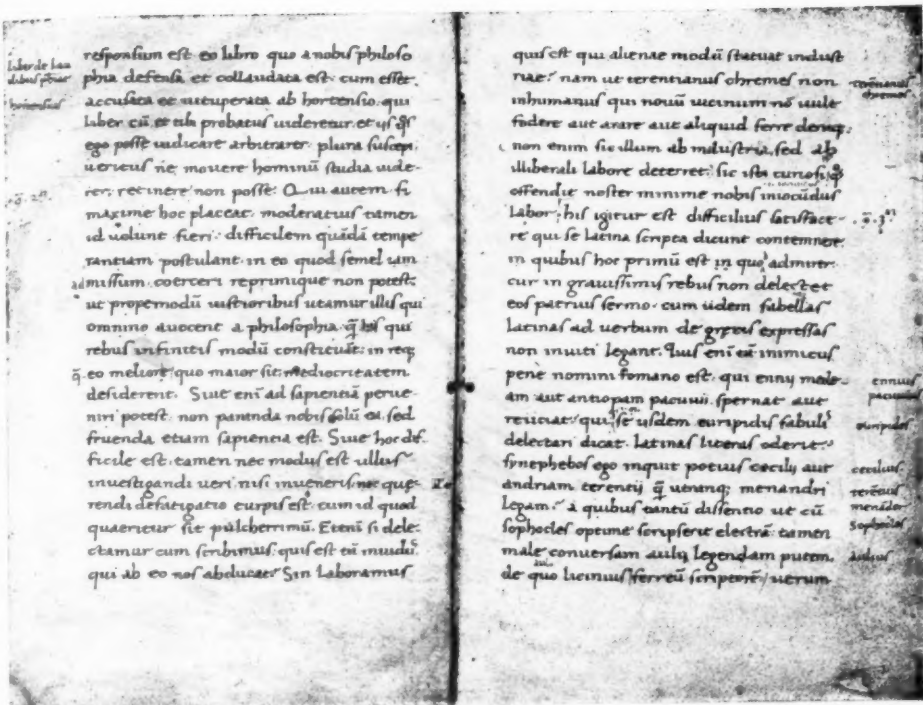 Liber de Lau
dibus phiae
hortensius
responsum est eo libro quo a nobis philoso
phia defensa et collaudata est cum esset
accusata et uituperata ab hortensio. qui
liber cū et tibi probatus uideretur. et ijs q̄s
ego posse iudicare arbitrarer. plura suscepi
ueritus ne mouere hominū studia uide
rer. retinere non posse. Qui autem si
maxime hoc placeat. moderatius tamen
id uolunt fieri. difficilem quādā tempe
rantiam postulant. in eo quod semel iam
admissum. coerceri reprimique non potest.
ut propemodū iustioribus utamur illis qui
omnino auocent a philosophia. q̄ his qui
rebus infinitis modū constituūt. in req;
eo meliore quo maior sit mediocritatem
desiderent. Siue enī ad sapientiā perue
niri potest. non paranda nobis solū ea. sed
fruenda etiam sapientia est. Siue hoc dif
ficile est. tamen nec modus est ullus
inuestigandi ueri nisi inueneris. nec que
rendi defatigatio turpis est. cum id quod
quaeritur sit pulcherrimū. Etenī si dele
ctamur cum scribimus. quis est tā inuidus
qui ab eo nos abducat? Sin laboramus
quis est qui alienae modū statuat indust
riae? nam ut terentianus chremes non
inhumanus qui nouū uicinum nō uult
fodere aut arare aut aliquid ferre deniq;
non enim sic illum ab industria. sed ab
illiberali labore deterret. sic isti curiosi. q̄s
offendit noster minime nobis iniocūdus
labor. his igitur est difficilius satisface
re qui se latina scripta dicunt contemnere.
in quibus hoc primū est in quo admirer.
cur in grauissimis rebus non delectet
eos patrius sermo. cum iidem fabellas
latinas ad uerbum de grecis expressas
non inuiti legant. Quis enī tā inimicus
pene nomini romano est. qui ennij mede
am aut antiopam pacuuij. spernat aut
reiiciat. qui se iisdem euripidis fabulis
delectari dicat. latinas literas oderit.
synephebos ego inquit potius cecilij aut
andriam terentij q̄ utranq; menandri
legam? a quibus tantū dissentio ut cū
sophocles optime scripserit electrā. tamen
male conuersam atilij legendam putem.
de quo licinius ferreū scriptorē. uerum
terētianus
chremes
ennius
pacuuius
euripides
cecilius
terētius
menāder
Sophocles